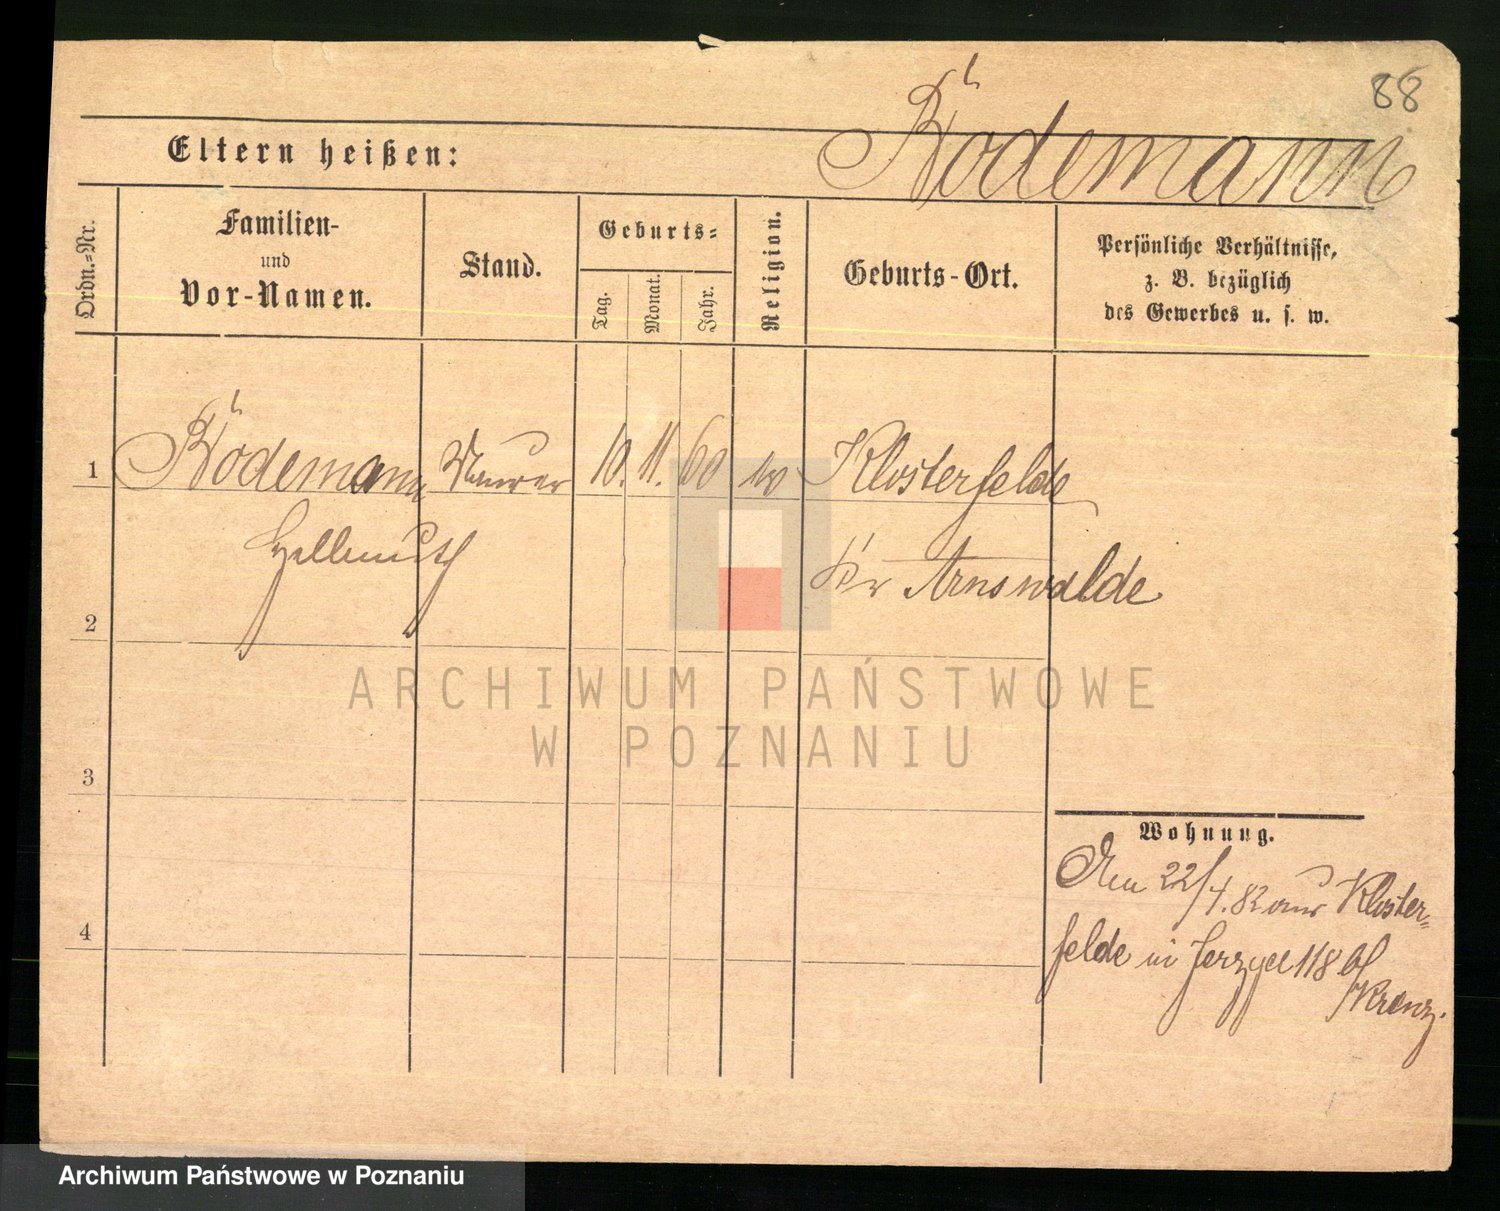 88
Bödemann
Eltern heißen:
Ordn.-Nr.
Familien-
und
Vor-Namen.
Stand.
Geburts-
Tag.
Monat.
Jahr.
Religion.
Geburts-Ort.
Persönliche Verhältnisse,
z. B. bezüglich
des Gewerbes u. s. w.
1 Bödemann Maurer 10. 11. 60 Klosterfelde
Hellmuth Kr Arnswalde
2
3
4
Wohnung.
22/4. 82 aus Kloster=
felde in Jerzyce 118 bf
Krenz.
ARCHIWUM PAŃSTWOWE
W POZNANIU
Archiwum Państwowe w Poznaniu